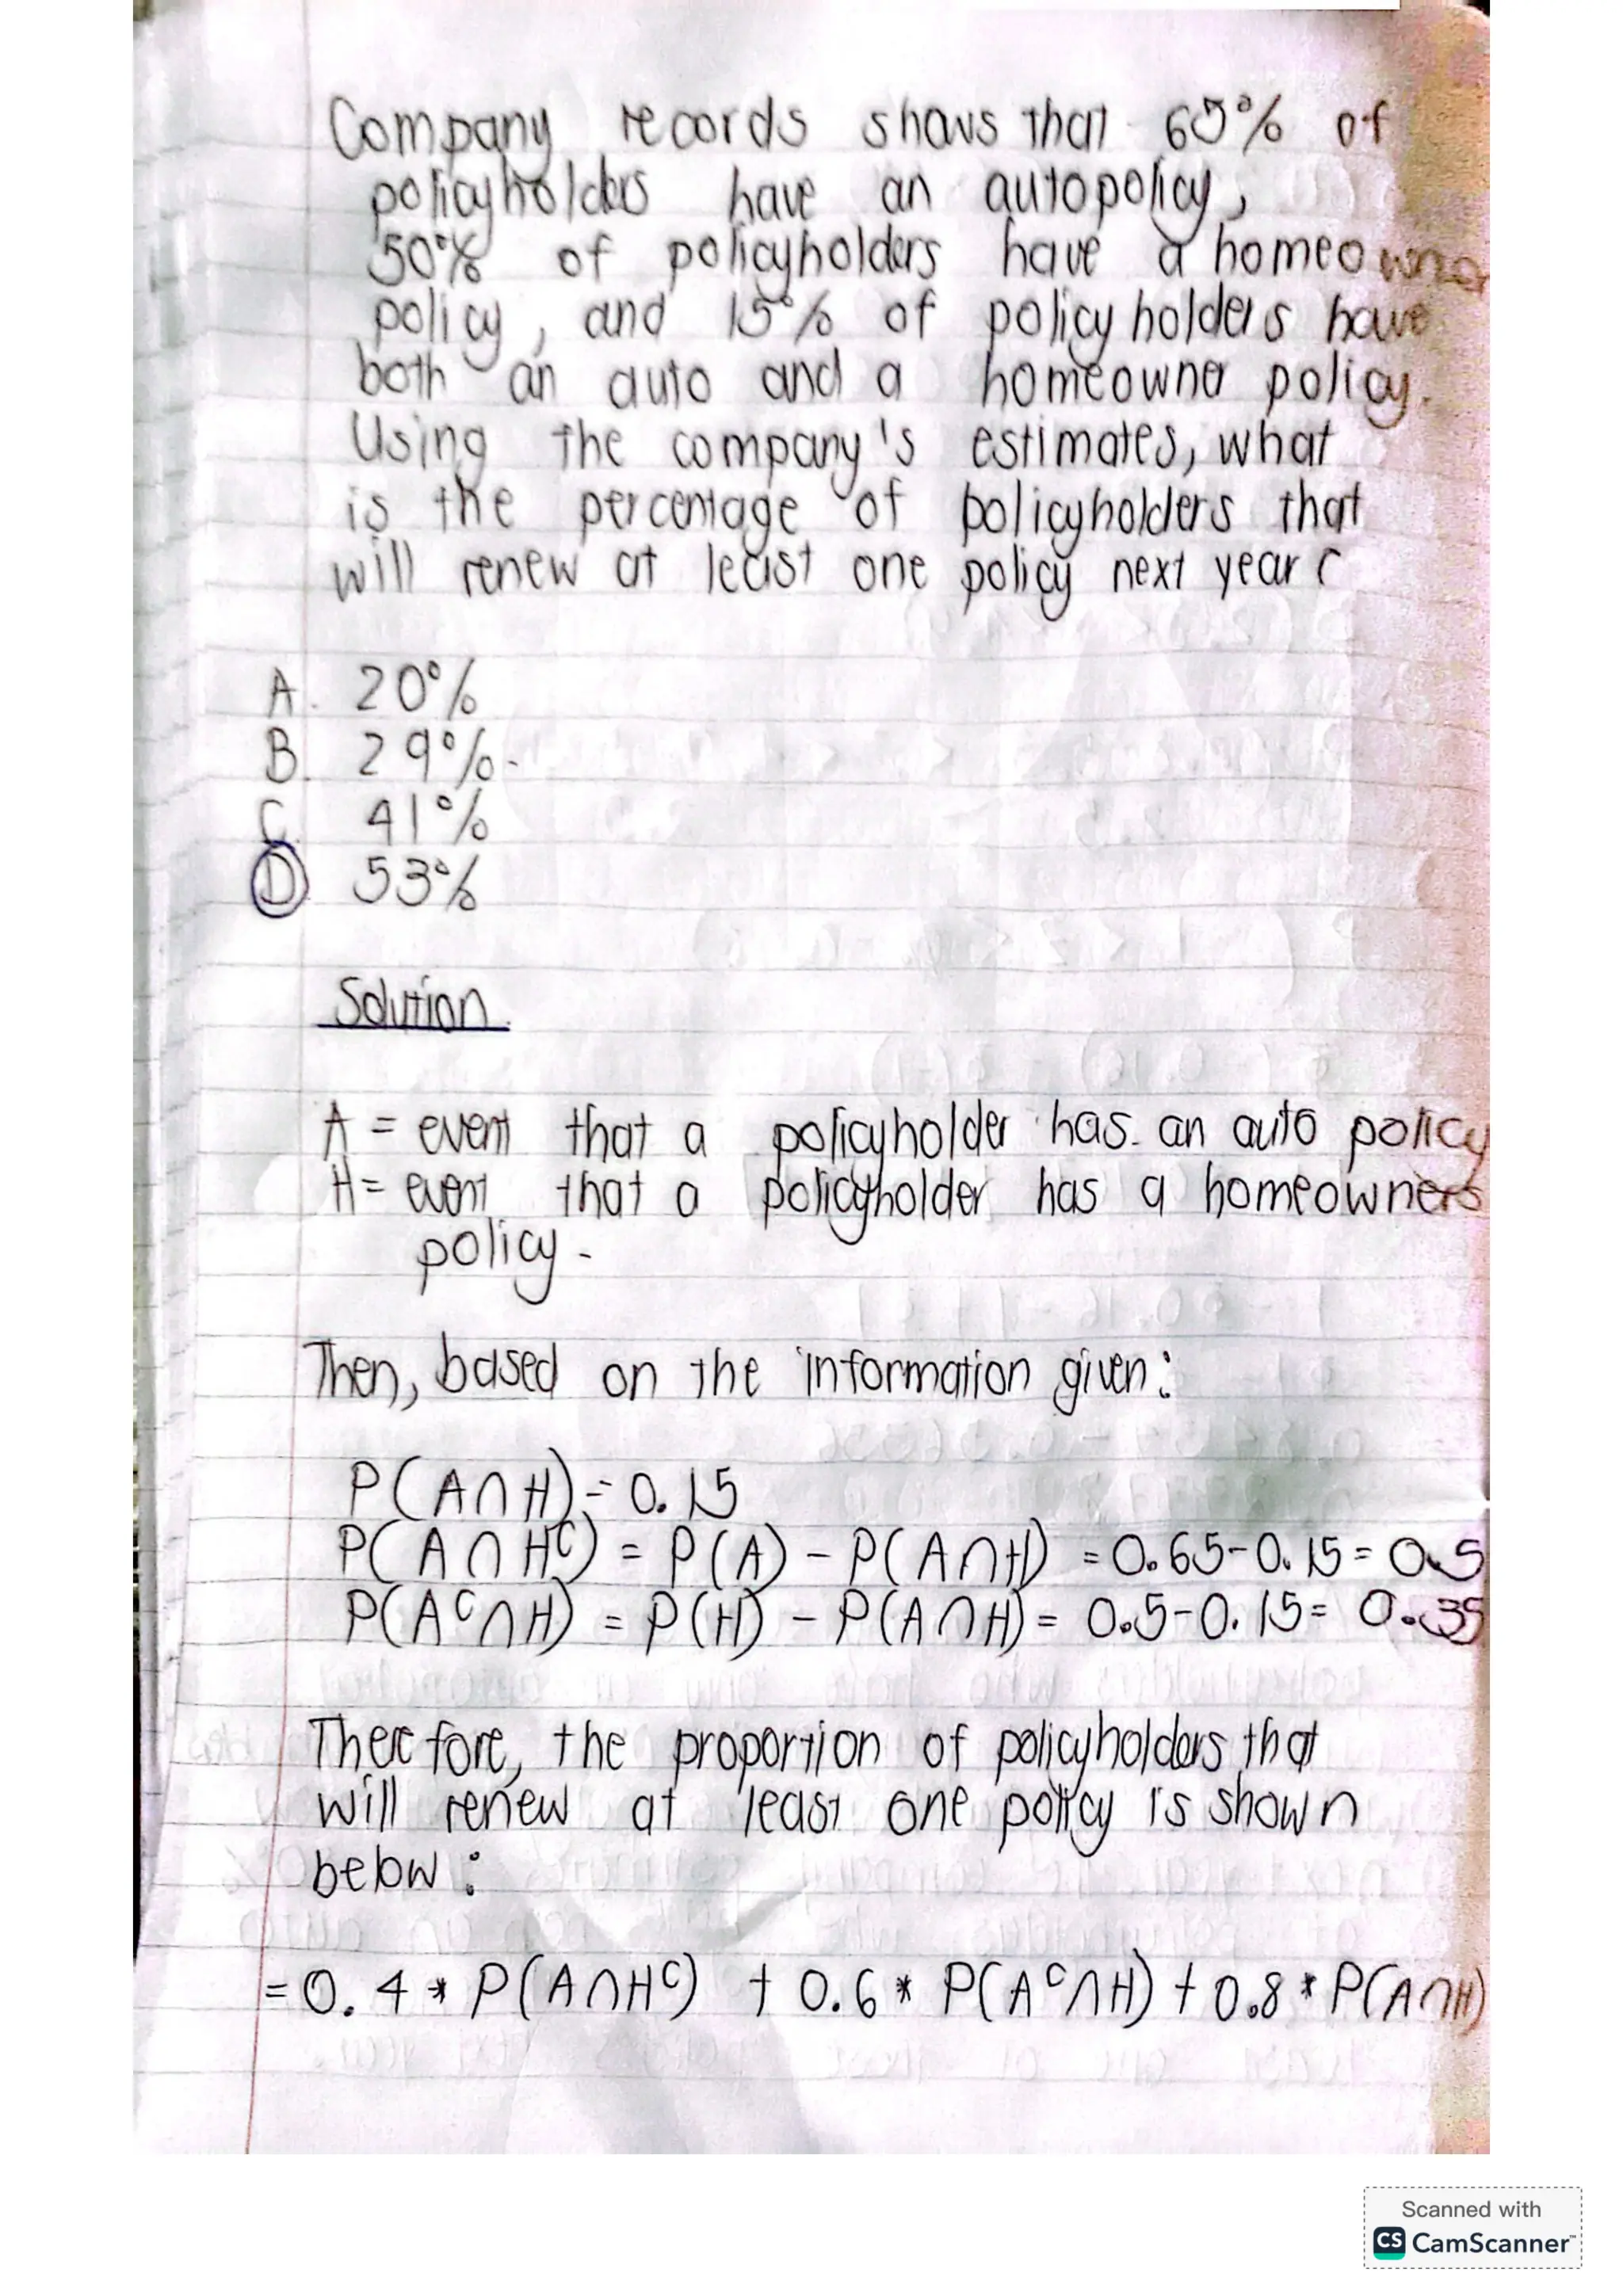 Company records shows that 65% of
policyholders have an autopolicy,
50% of policyholders have a homeowner
policy, and 15% of policy holders have
both an auto and a homeowner policy.
Using the company's estimates, what
is the percentage of policyholders that
will renew at least one policy next year?
A. 20%
B. 29%.
C. 41%
D 53%
Solution
A = event that a policyholder has an auto policy
H = event that a policyholder has a homeowners
policy.
Then, based on the information given:
P(A∩H) = 0.15
P(A∩Hᶜ) = P(A) - P(A∩H) = 0.65-0.15 = 0.5
P(Aᶜ∩H) = P(H) - P(A∩H) = 0.5-0.15 = 0.35
Therefore, the proportion of policyholders that
will renew at least one policy is shown
below:
= 0.4 * P(A∩Hᶜ) + 0.6 * P(Aᶜ∩H) + 0.8 * P(A∩H)
Scanned with
CS CamScanner™